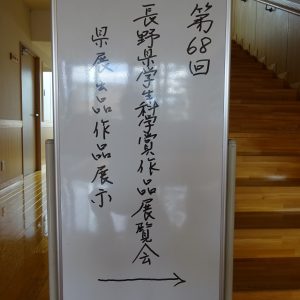 第68回
長野県学生科学賞作品展覧会
県展出品作品展示